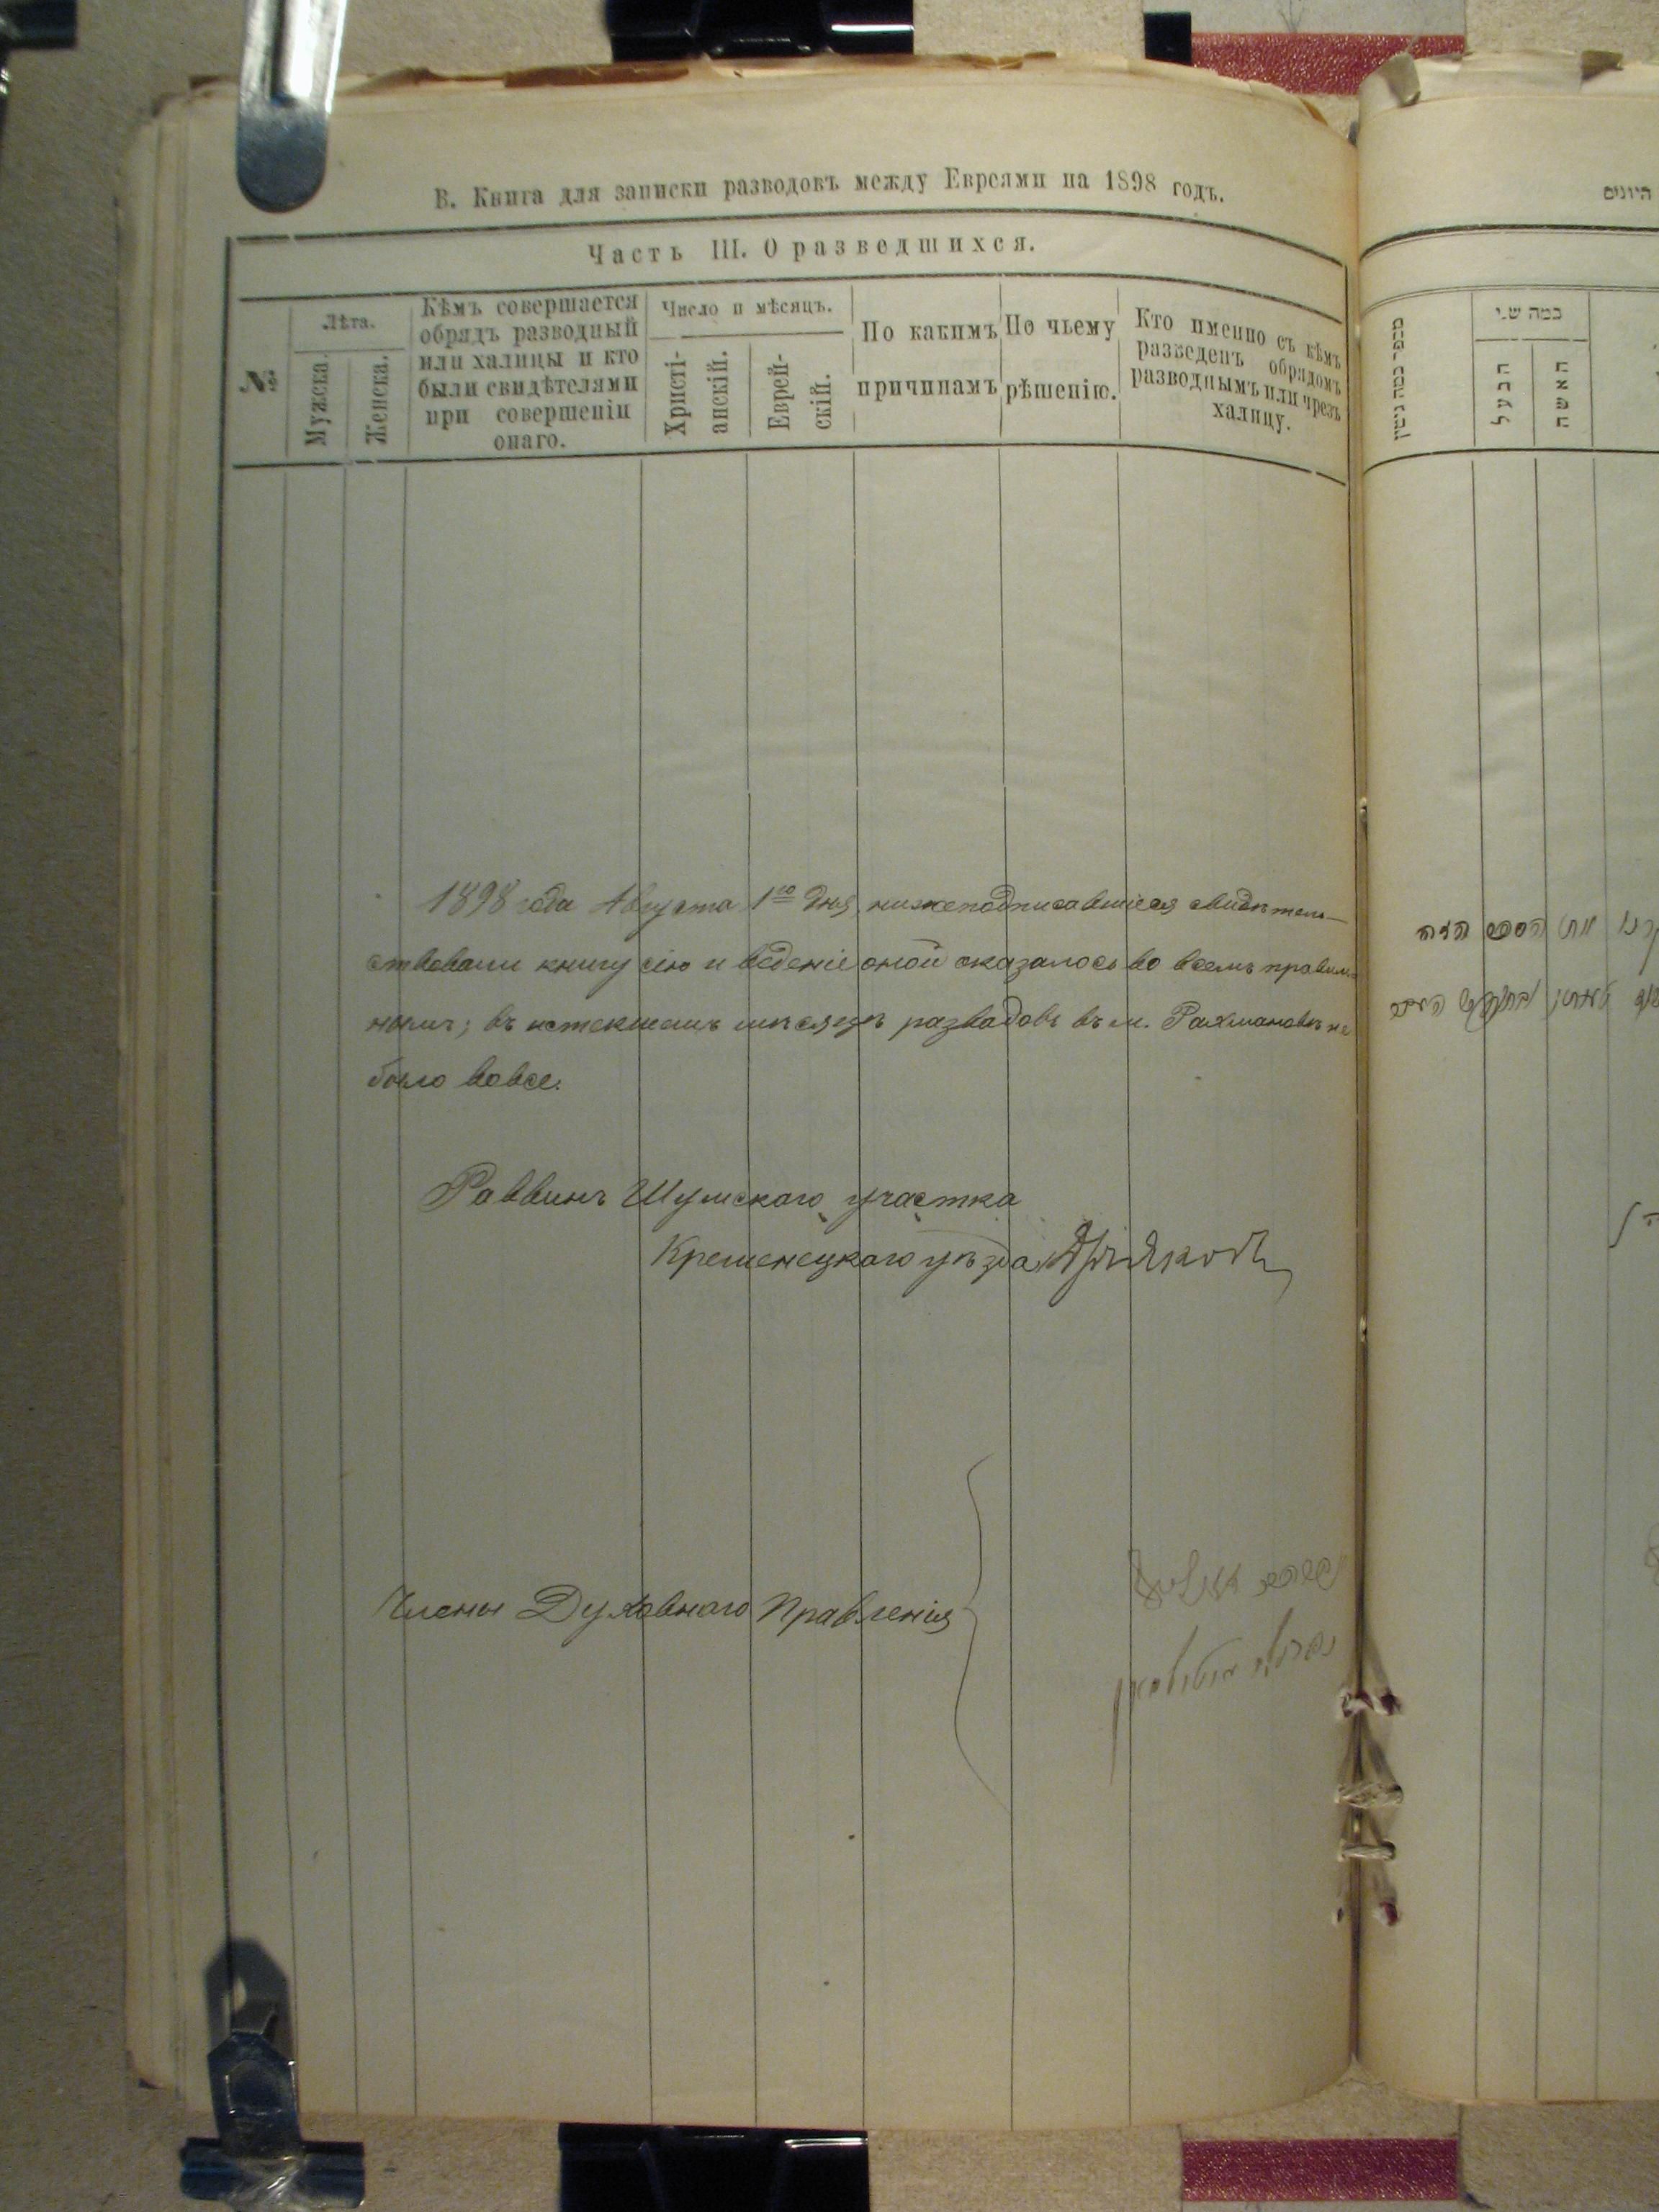 В. Книга для записки разводовъ между Евреями на 1898 годъ.
Часть III. О разведшихся.
№
Лѣта.
Мужеска.
Женска.
Кѣмъ совершается
обрядъ разводный
или халицы и кто
были свидѣтелями
при совершеніи
онаго.
Число и мѣсяцъ.
Христі-
анскій.
Еврей-
скій.
По какимъ
причинамъ
По чьему
рѣшенію.
Кто именно съ кѣмъ
разведенъ обрядомъ
разводнымъ или чрезъ
халицу.
1898 года Августа 1го дня, нижеподписавшіеся свидѣтель-
ствовали книгу сію и веденіе оной оказалось во всемъ правиль-
нымъ; въ истекшемъ мѣсяцѣ разводовъ въ м. Рахмановкѣ не
было вовсе.
Раввинъ Шумскаго участка
Кременецкаго уѣзда
Члены Духовнаго Правленія
היונים
מספר כמה ניתן
כמה שני
הבעל
האשה
את הספר הזה